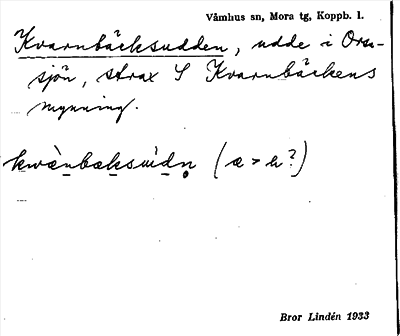 Våmhus sn, Mora tg, Koppb. l.
Kvarnbäcksudden, udde i Orsa-
sjön, strax S Kvarnbäckens
mynning.
kwæ̀nbæksùdn̥ (æ > a?)
Bror Lindén 1933